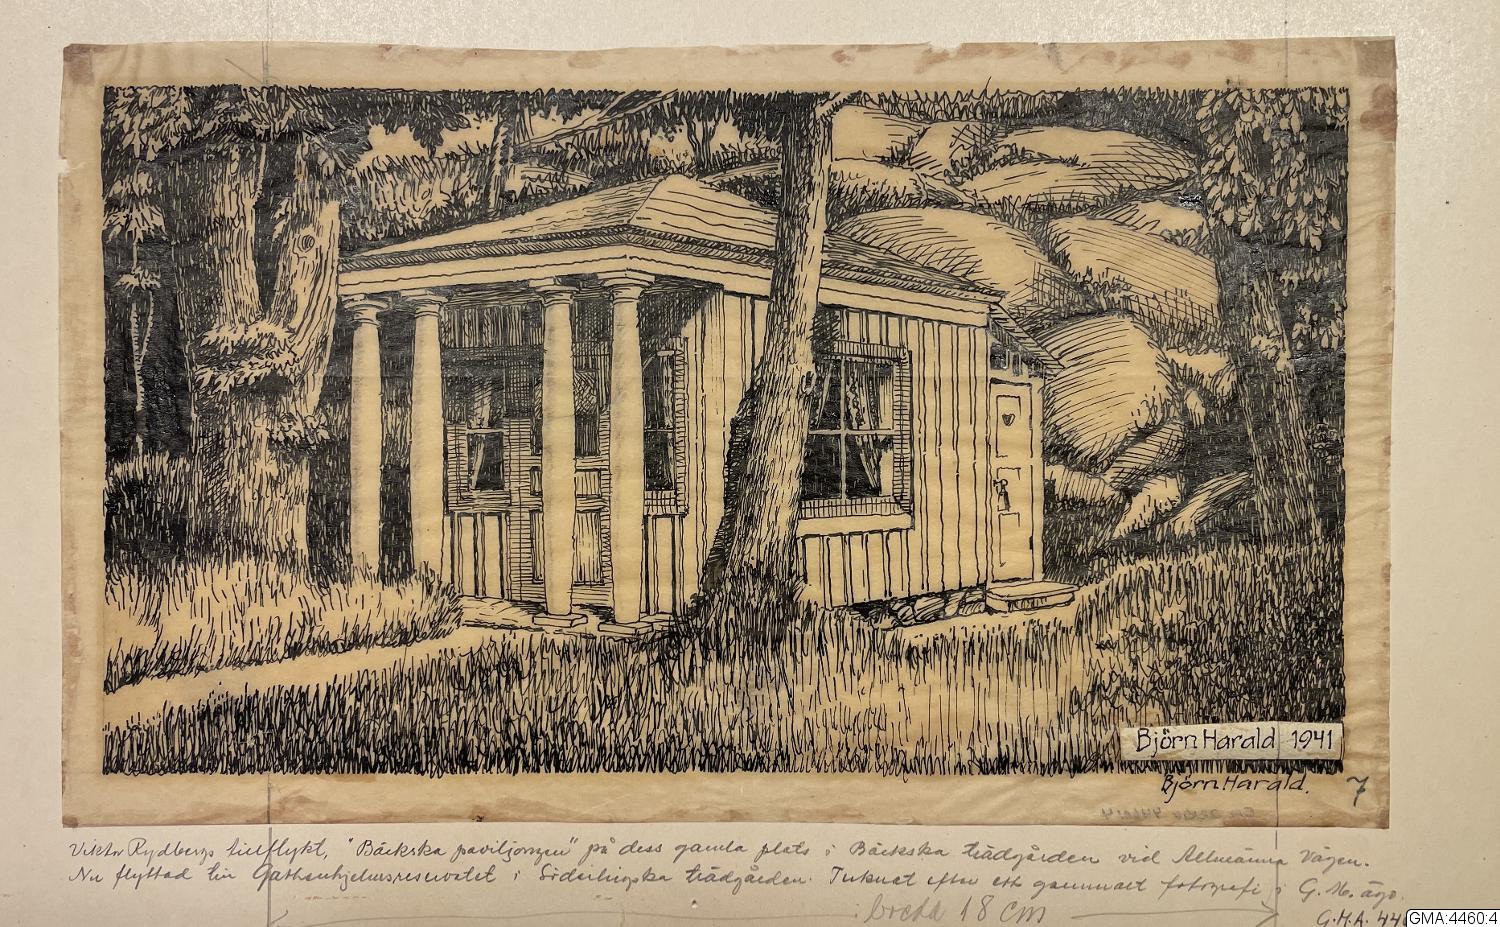 Björn Harald 1941
Björn Harald.
7
Viktor Rydbergs tillflykt, "Bäckska paviljongen" på dess gamla plats i Bäckska trädgården vid Allmänna Vägen.
Nu flyttad till Gathenhjelmsreservatet i Söderlingska trädgården. Teknat efter ett gammalt fotografi i G. M. ägo.
bredd 18 cm
G.M.A.
GMA:4460:4